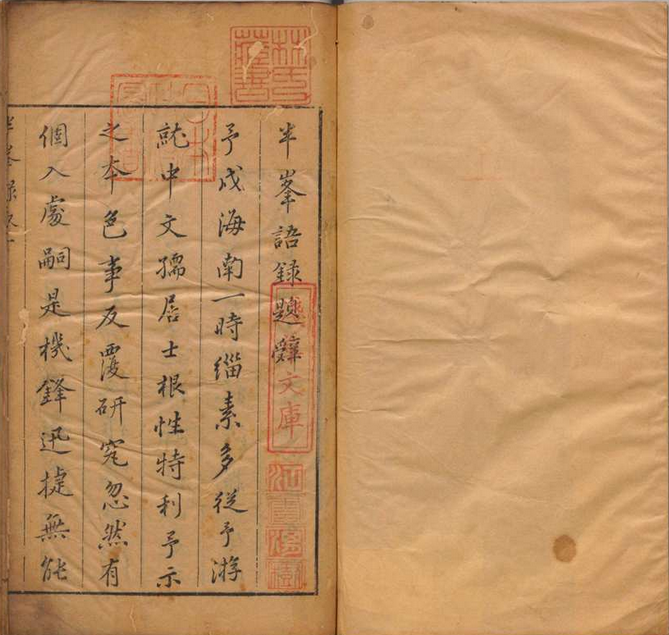 半峯語録題辭
予戍海南一時緇素多從予游
就中文孺居士根性特利予示
之本色事反覆研究忽然有
個入處嗣是機鋒迅捷無能
林氏藏書
文庫